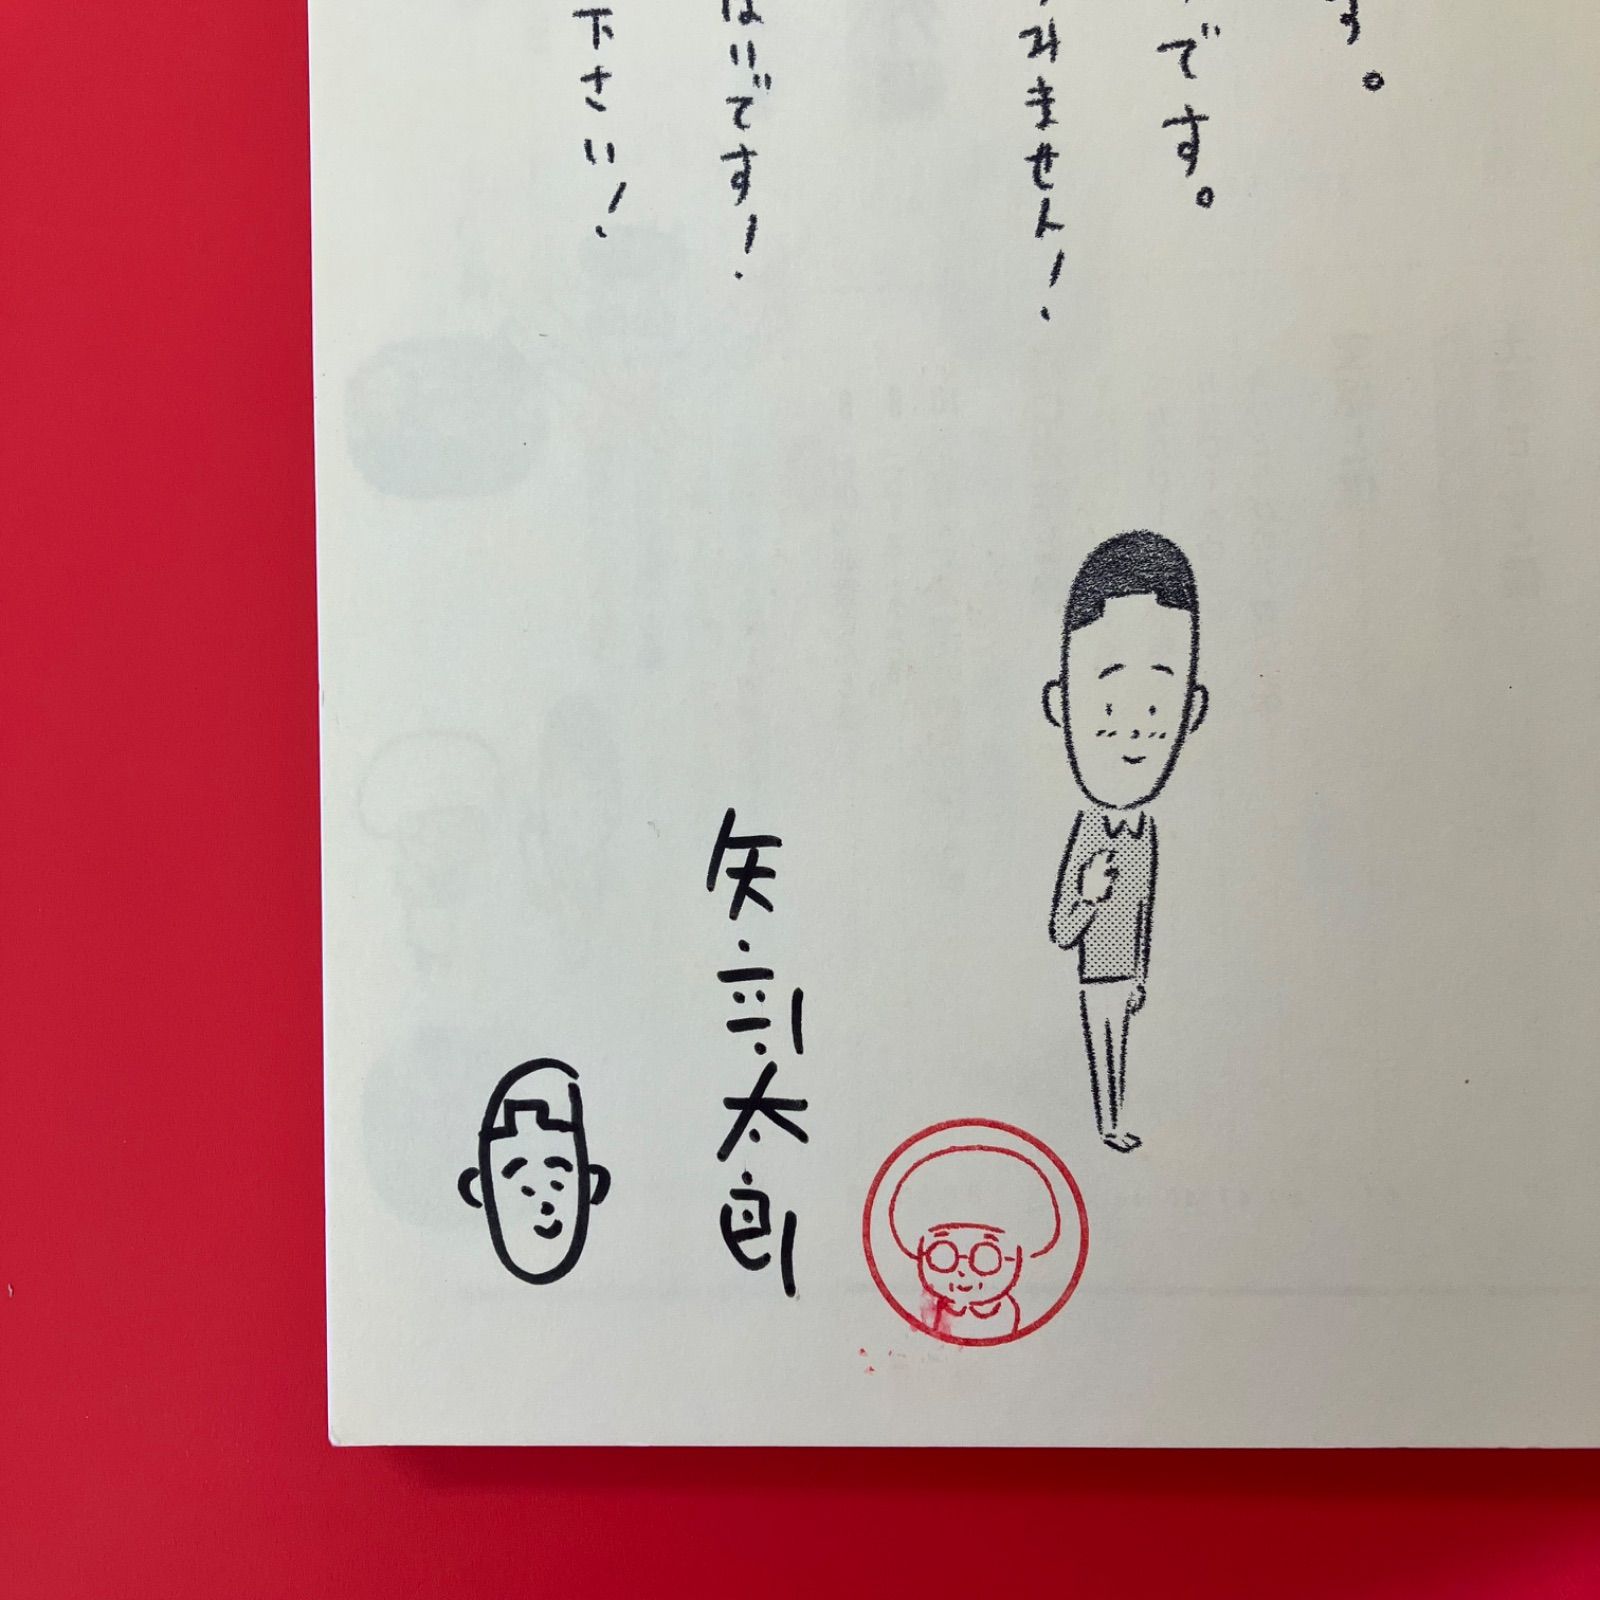 す。
です。
みません！
はいです！
下さい！
矢部太郎